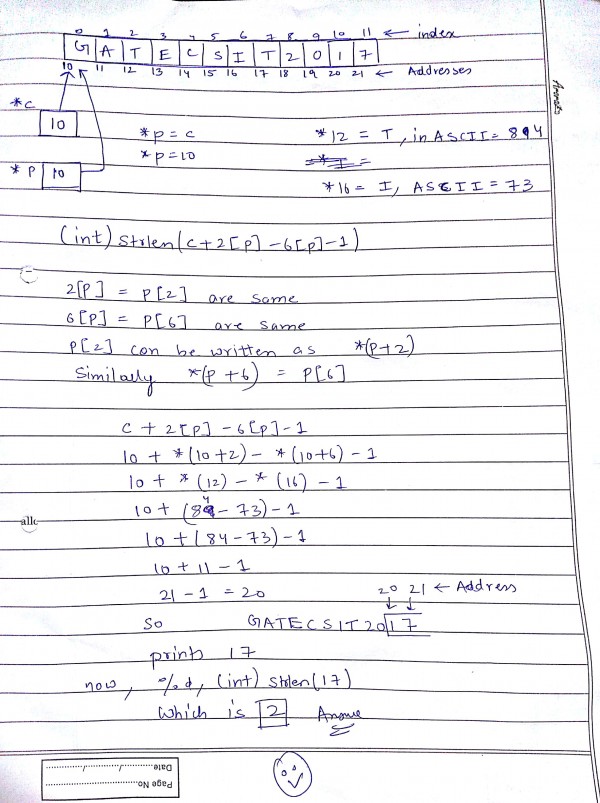 0 1 2 3 4 5 6 7 8 9 10 11 ← index
G A T E C S I T 2 0 1 7
10 11 12 13 14 15 16 17 18 19 20 21 ← Addresses
*c
10
*p = c *12 = T, in ASCII = 84
*p = 10
* P 10
*16 = I, ASCII = 73
(int) strlen(c+2[p] - 6[p] - 1)
2[P] = P[2] are same
6[P] = P[6] are same
P[2] can be written as *(P+2)
Similarly *(P+6) = P[6]
c + 2[p] - 6[p] - 1
10 + *(10+2) - *(10+6) - 1
10 + *(12) - *(16) - 1
10 + (84 - 73) - 1
10 + (84 - 73) - 1
10 + 11 - 1
21 - 1 = 20
20 21 ← Address
So GATECSIT2017
prints 17
now, %d, (int) strlen(17)
Which is 2
Page No.
Date